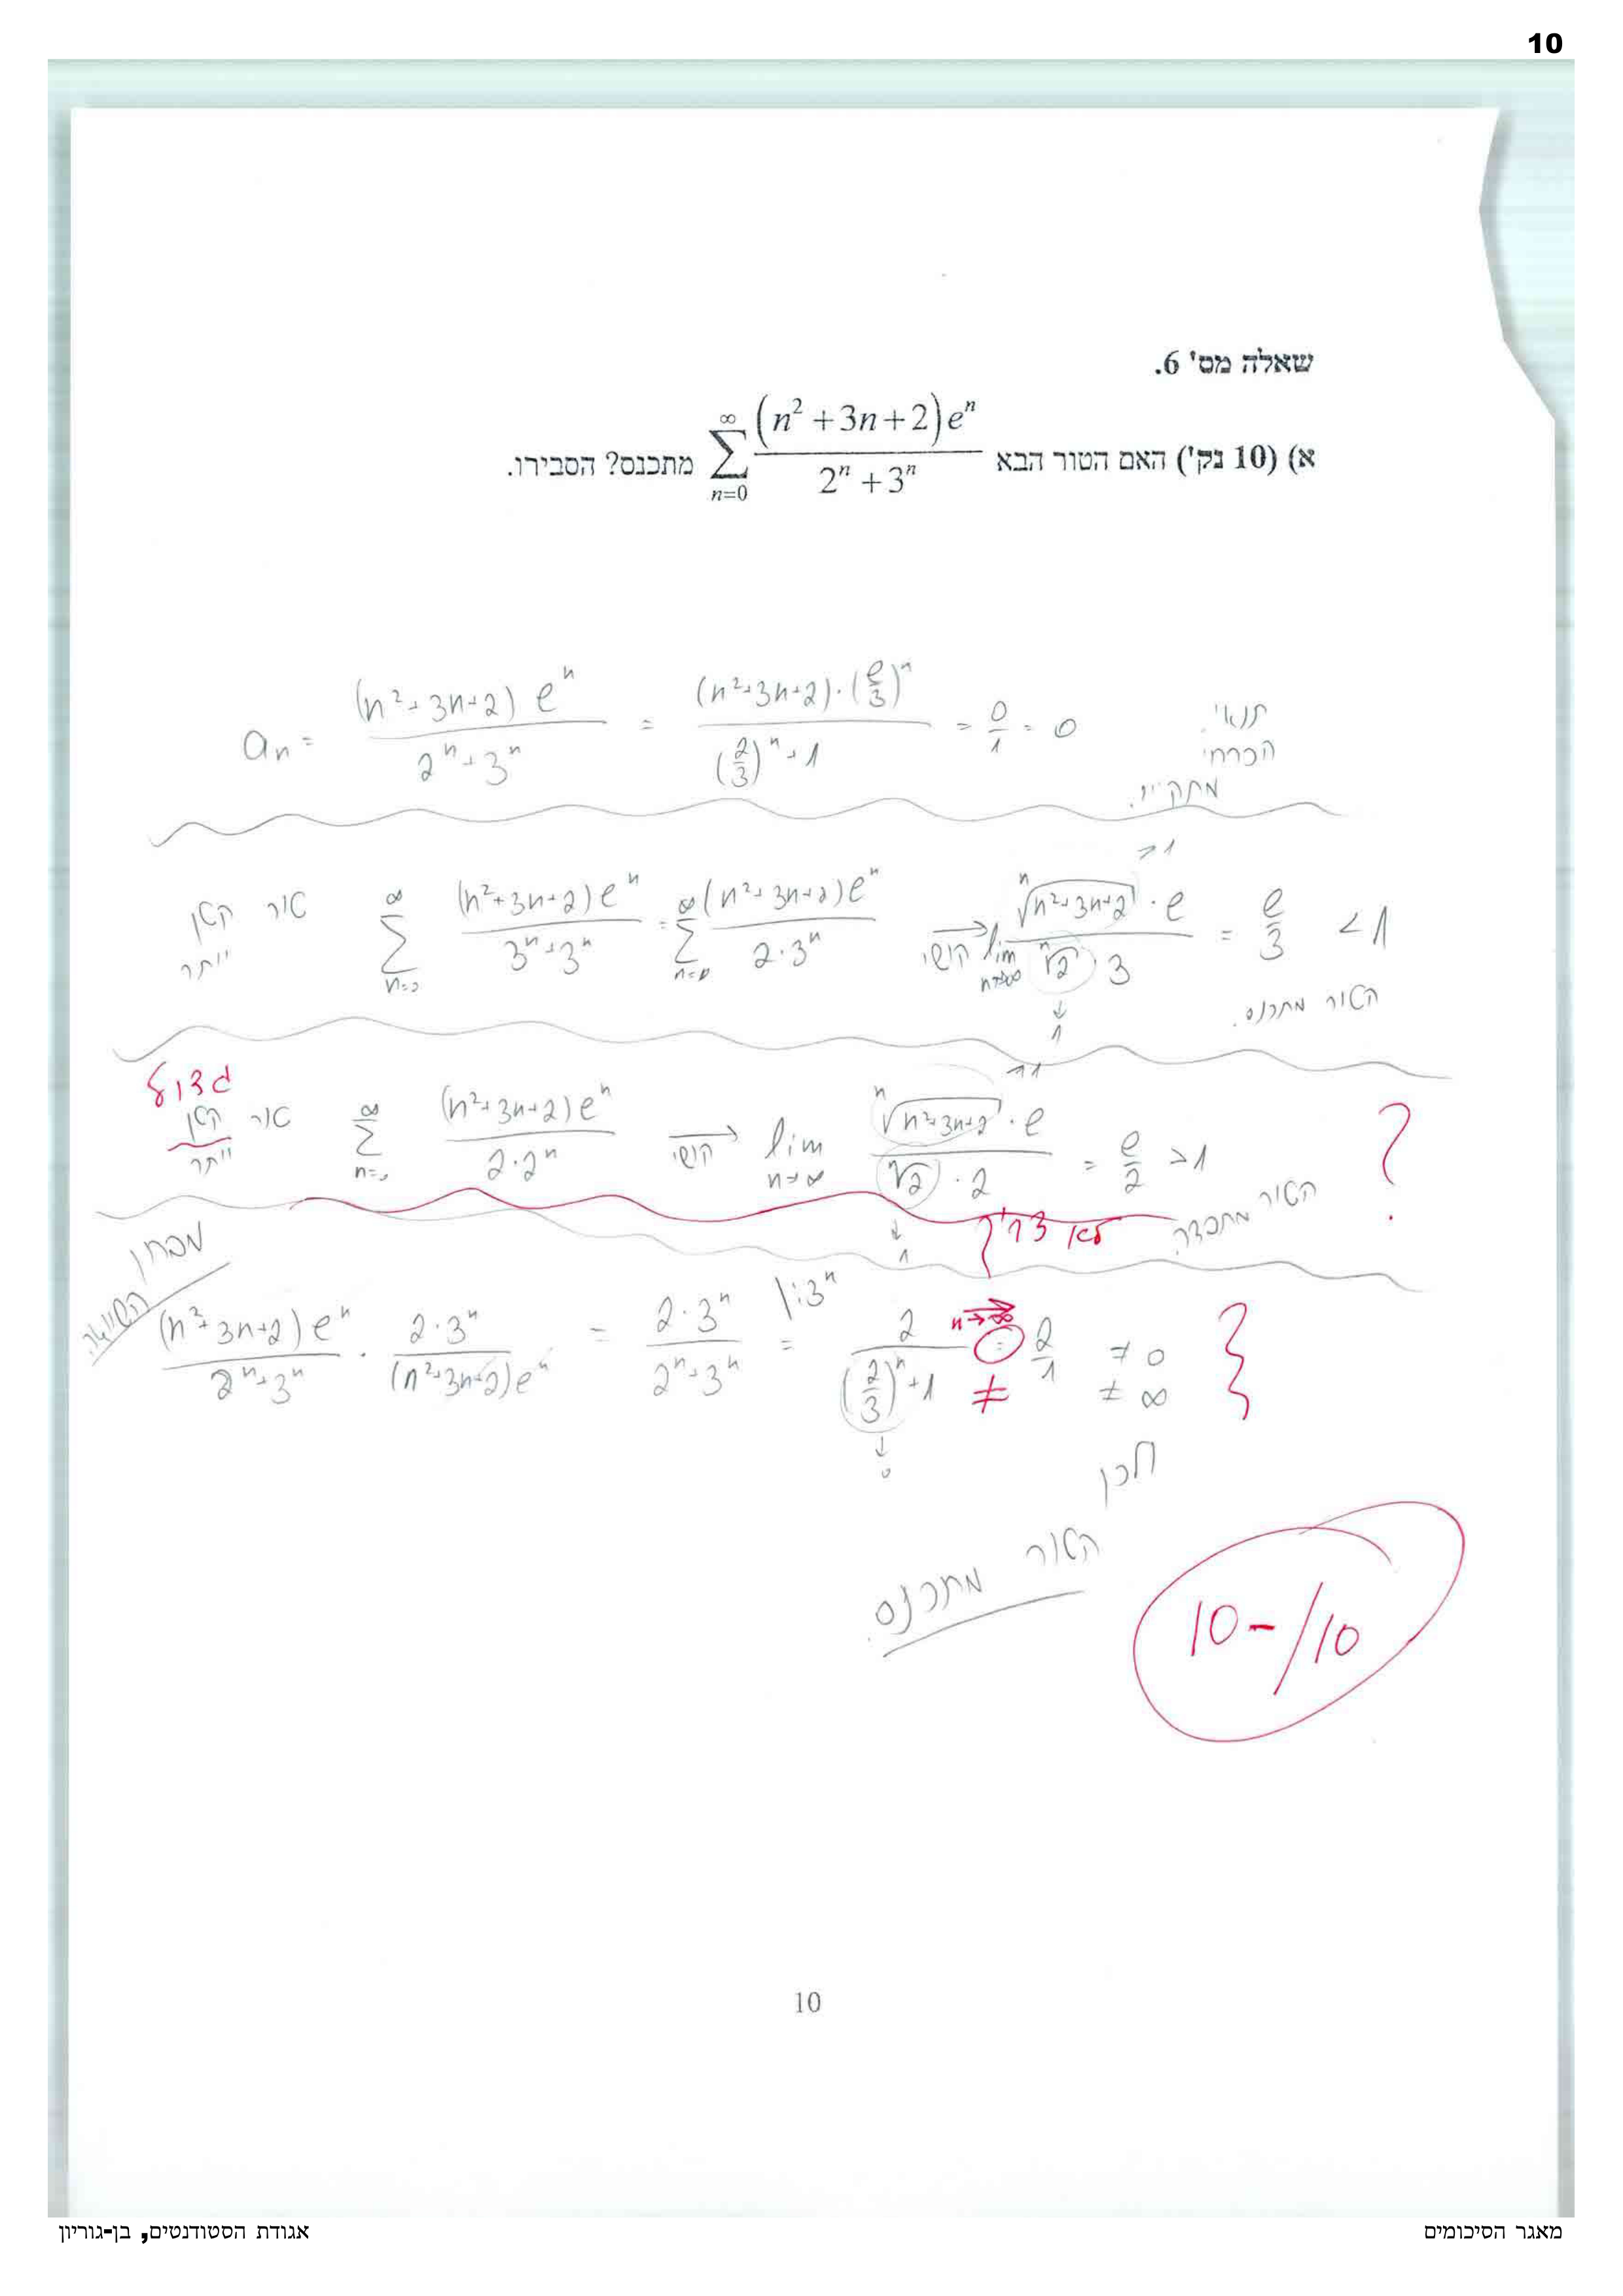 10
שאלה מס' 6.
א) (10 נק') האם הטור הבא $\sum_{n=0}^{\infty} \frac{(n^2+3n+2)e^n}{2^n+3^n}$ מתכנס? הסבירו.
$a_n = \frac{(n^2+3n+2) e^n}{2^n+3^n} = \frac{(n^2+3n+2)\cdot(\frac{e}{3})^n}{(\frac{2}{3})^n+1} = \frac{0}{1} = 0$ תנאי
הכרחי
מתקיים.
טור קטן $\sum_{n=0}^{\infty} \frac{(n^2+3n+2)e^n}{3^n+3^n} = \sum_{n=0}^{\infty} \frac{(n^2+3n+2)e^n}{2\cdot 3^n}$ קושי → $\lim_{n\to\infty} \frac{\sqrt[n]{n^2+3n+2}\cdot e}{\sqrt[n]{2}\cdot 3} = \frac{e}{3} < 1$
יותר
→1
↓
1
הטור מתכנס.
גדול
טור קטן $\sum_{n=0}^{\infty} \frac{(n^2+3n+2)e^n}{2\cdot 2^n}$ קושי → $\lim_{n\to\infty} \frac{\sqrt[n]{n^2+3n+2}\cdot e}{\sqrt[n]{2}\cdot 2} = \frac{e}{2} > 1$ ?
יותר
→1
↓
1
הטור מתבדר.
לא צריך
מבחן
השוואה
$\frac{(n^2+3n+2)e^n}{2^n+3^n} \cdot \frac{2\cdot 3^n}{(n^2+3n+2)e^n} = \frac{2\cdot 3^n}{2^n+3^n} \ |:3^n = \frac{2}{(\frac{2}{3})^n+1} = \frac{2}{1}$ ≠ 0
≠ ∞
n→∞
≠
↓
0
לכן
הטור מתכנס.
10-/10
10
מאגר הסיכומים
אגודת הסטודנטים, בן-גוריון